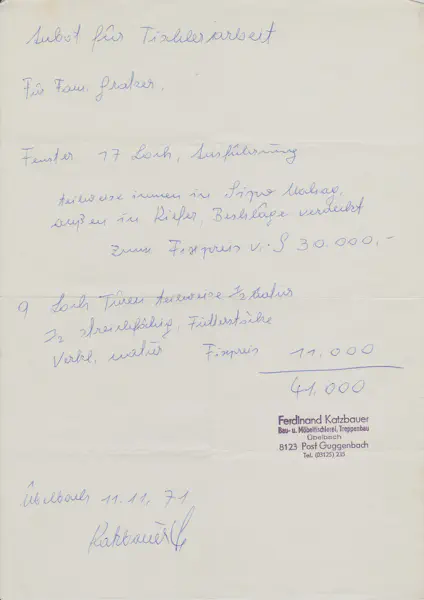 Anbot für Tischlerarbeit
Für Fam. Gratzer.
Fenster 17 Loch, Ausführung
teilweise innen in Sipo Mahag.
außen in Kiefer, Beschläge verdeckt
zum Fixpreis v. S 30.000,-
9 Loch Türen teilweise 1/2 natur
1/2 streichfähig, Futterstöcke
Verkl. natur Fixpreis 11.000
41.000
Ferdinand Katzbauer
Bau- u. Möbeltischlerei, Treppenbau
Übelbach
8123 Post Guggenbach
Tel. (03125) 235
Übelbach 11.11.71
Katzbauer